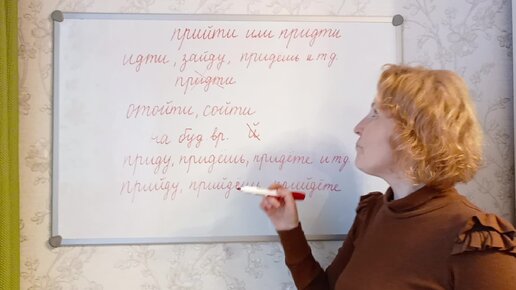 прийти или придти
идти, зайду, придешь и т.д.
прийдти
отойти, сойти
на буд вр. й
приду, придешь, придете и т.д.
прийду, прийдешь, прийдёте